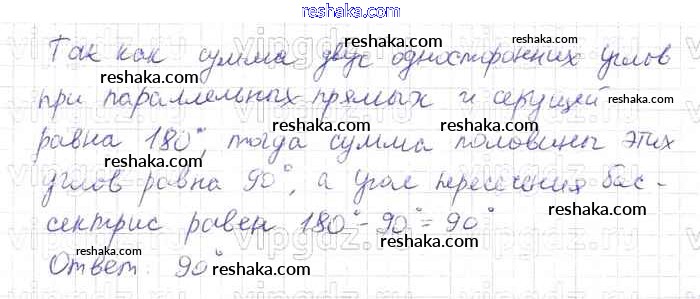 reshaka.com
Так как сумма двух односторонних углов
reshaka.com reshaka.com
при параллельных прямых и секущей
reshaka.com reshaka.com
равна 180°, тогда сумма половины этих
reshaka.com reshaka.com
углов равна 90°, а угол пересечения бис-
reshaka.com reshaka.com
сектрис равен 180° - 90° = 90°
reshaka.com reshaka.com
Ответ: 90°
reshaka.com reshaka.com